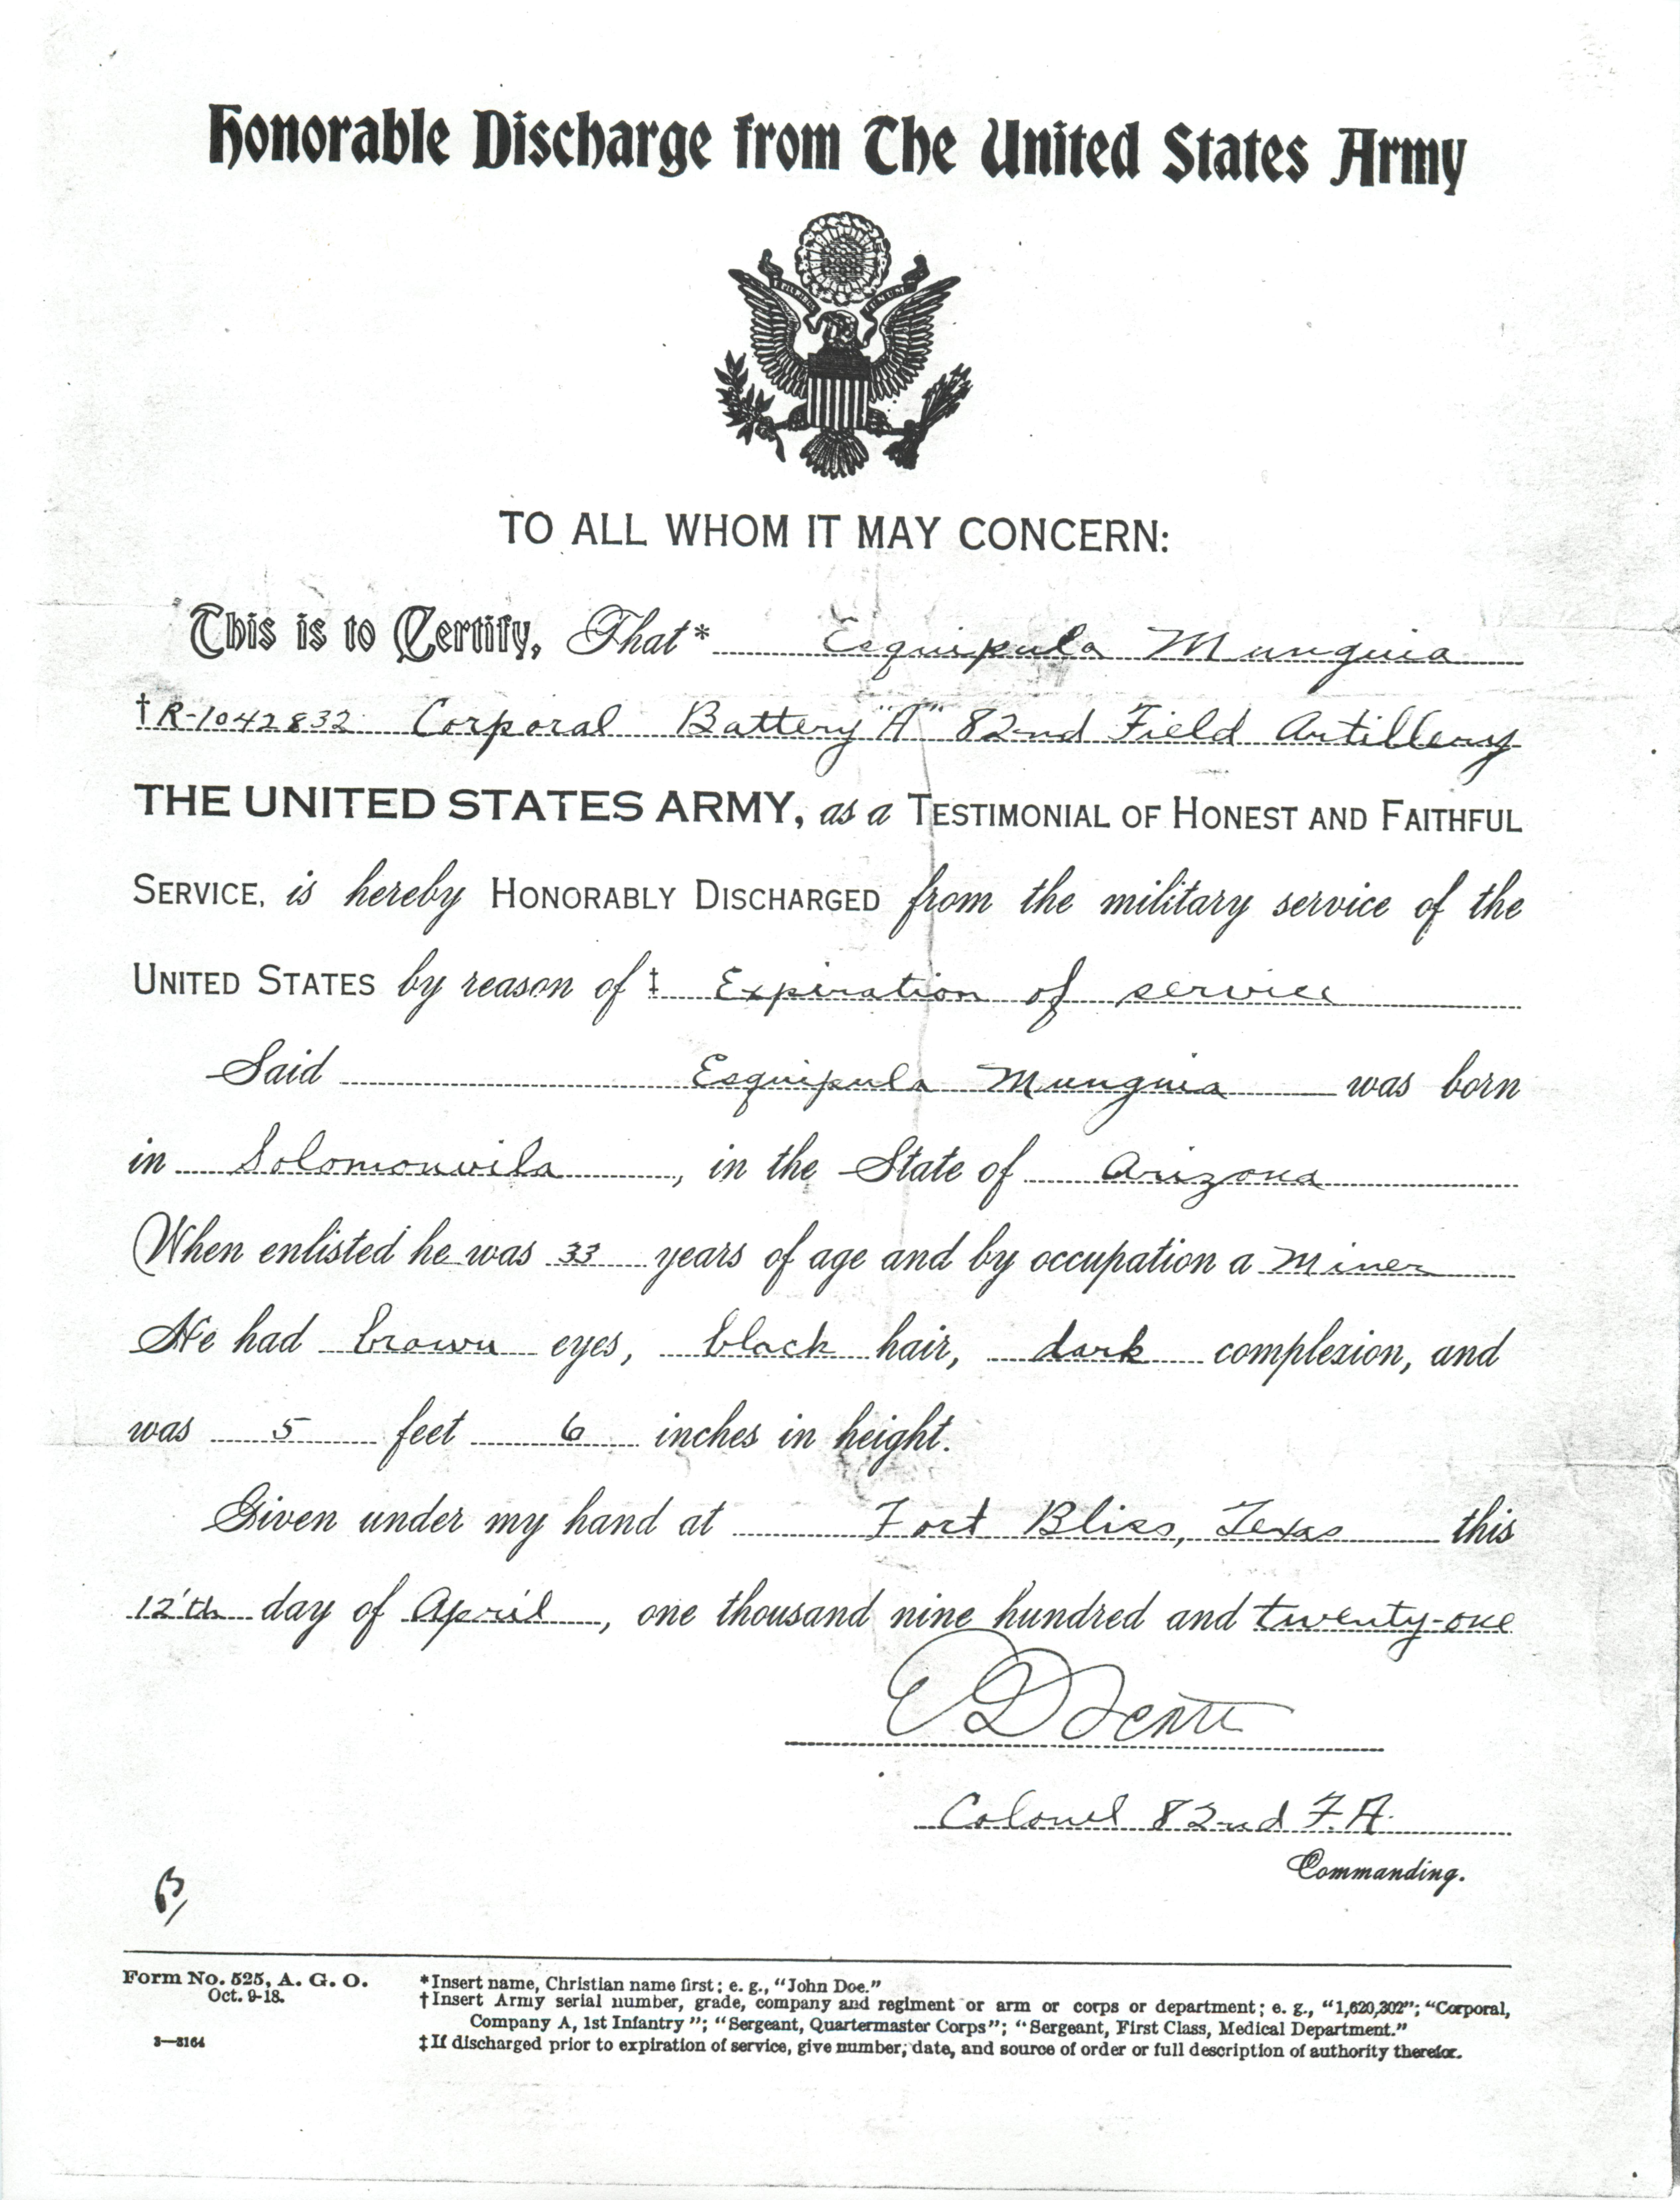 Honorable Discharge from The United States Army
TO ALL WHOM IT MAY CONCERN:
This is to Certify, That* Esquipula Munguia
†R-1042832 Corporal Battery "A" 82nd Field Artillery
THE UNITED STATES ARMY, as a TESTIMONIAL OF HONEST AND FAITHFUL
SERVICE, is hereby HONORABLY DISCHARGED from the military service of the
UNITED STATES by reason of ‡ Expiration of service
Said Esquipula Munguia was born
in Solomonvila, in the State of Arizona
When enlisted he was 33 years of age and by occupation a Miner
He had brown eyes, black hair, dark complexion, and
was 5 feet 6 inches in height.
Given under my hand at Fort Bliss, Texas this
12'th day of April, one thousand nine hundred and twenty-one
Colonel 82nd F.A.
Commanding.
Form No. 525, A. G. O.
Oct. 9-18.
3—3164
*Insert name, Christian name first; e. g., "John Doe."
†Insert Army serial number, grade, company and regiment or arm or corps or department; e. g., "1,620,302"; "Corporal,
Company A, 1st Infantry"; "Sergeant, Quartermaster Corps"; "Sergeant, First Class, Medical Department."
‡If discharged prior to expiration of service, give number, date, and source of order or full description of authority therefor.